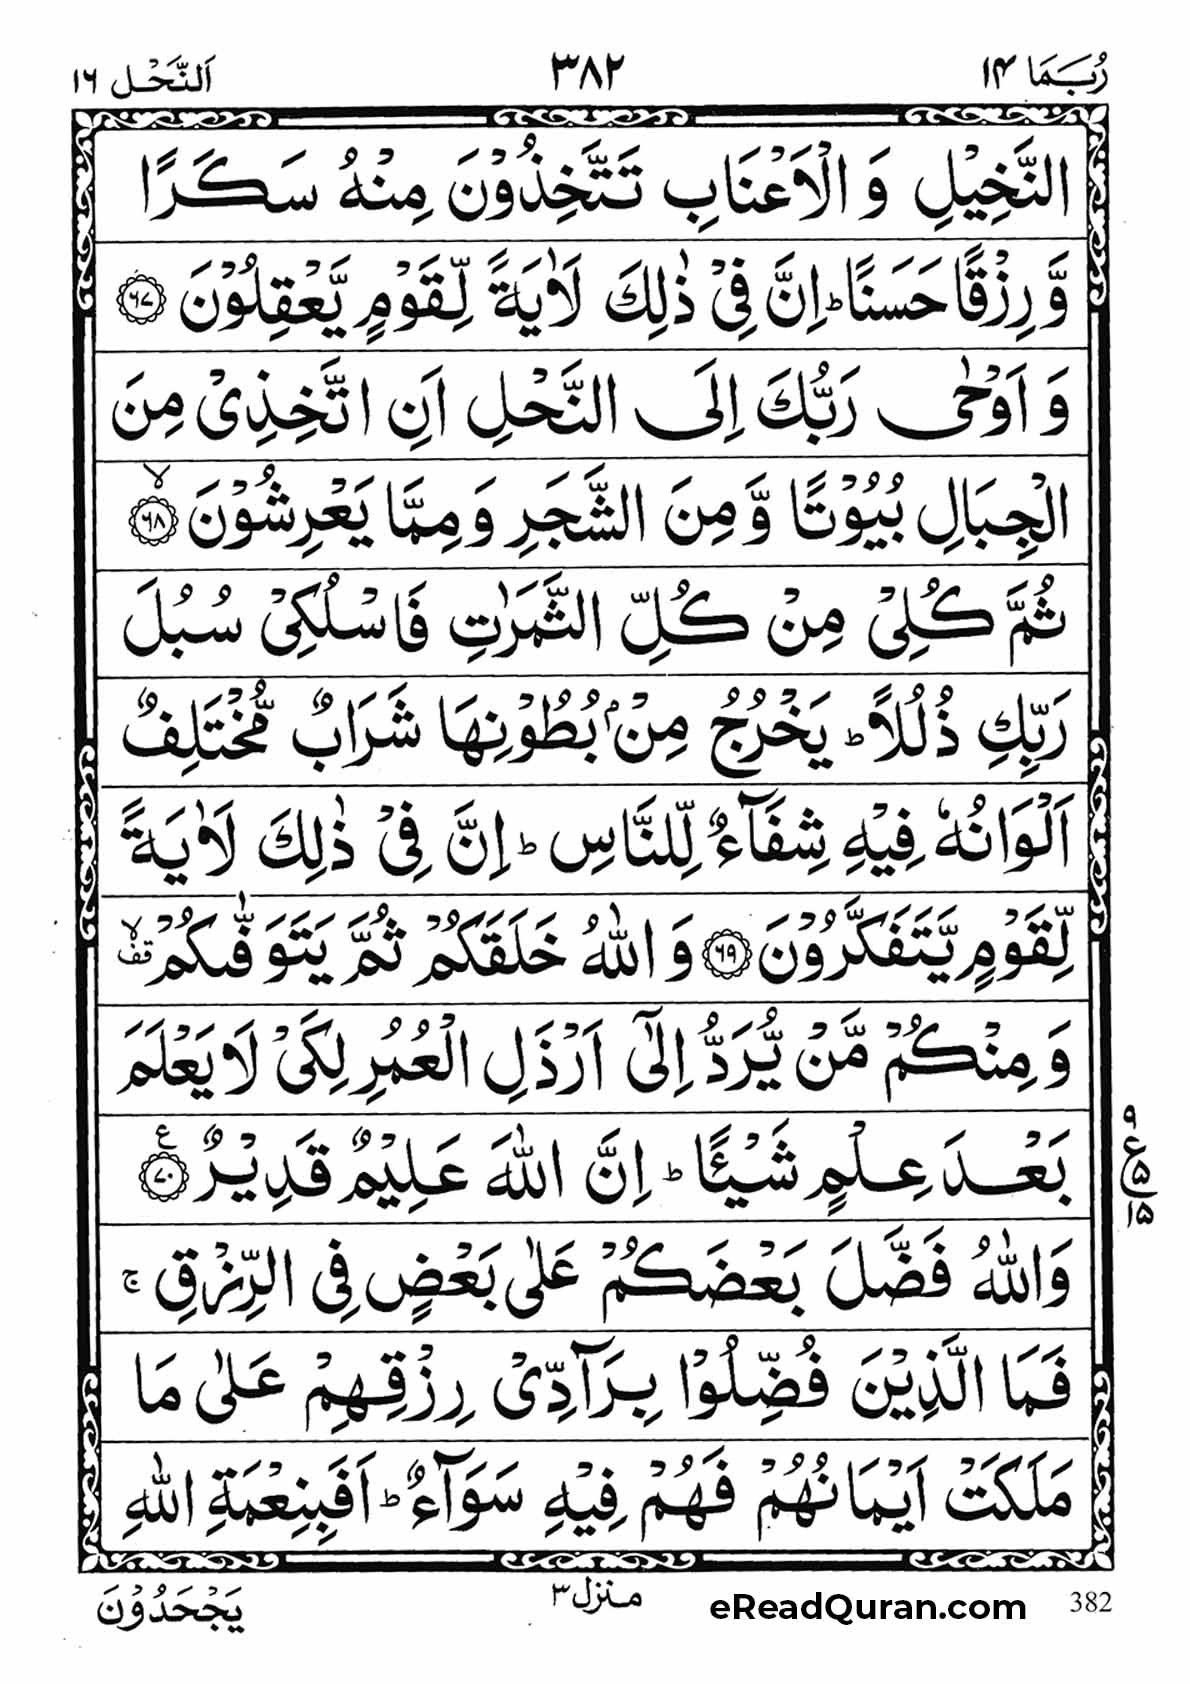 رُبَمَا ١٤
٣٨٢
اَلنَّحْل ١٦
النَّخِيْلِ وَ الْاَعْنَابِ تَتَّخِذُوْنَ مِنْهُ سَكَرًا
وَّ رِزْقًا حَسَنًا ؕ اِنَّ فِيْ ذٰلِكَ لَاٰيَةً لِّقَوْمٍ يَّعْقِلُوْنَ ﴿۶۷﴾
وَ اَوْحٰى رَبُّكَ اِلَى النَّحْلِ اَنِ اتَّخِذِيْ مِنَ
الْجِبَالِ بُيُوْتًا وَّ مِنَ الشَّجَرِ وَ مِمَّا يَعْرِشُوْنَ ﴿۶۸﴾ ۙ
ثُمَّ كُلِيْ مِنْ كُلِّ الثَّمَرٰتِ فَاسْلُكِيْ سُبُلَ
رَبِّكِ ذُلُلًا ؕ يَخْرُجُ مِنْۢ بُطُوْنِهَا شَرَابٌ مُّخْتَلِفٌ
اَلْوَانُهٗ فِيْهِ شِفَآءٌ لِّلنَّاسِ ؕ اِنَّ فِيْ ذٰلِكَ لَاٰيَةً
لِّقَوْمٍ يَّتَفَكَّرُوْنَ ﴿۶۹﴾ وَ اللّٰهُ خَلَقَكُمْ ثُمَّ يَتَوَفّٰىكُمْ ۙ قف
وَ مِنْكُمْ مَّنْ يُّرَدُّ اِلٰۤى اَرْذَلِ الْعُمُرِ لِكَيْ لَا يَعْلَمَ
بَعْدَ عِلْمٍ شَيْـًٔا ؕ اِنَّ اللّٰهَ عَلِيْمٌ قَدِيْرٌ ﴿۷۰﴾ ع
۹
ع ۵
۱۵
وَاللّٰهُ فَضَّلَ بَعْضَكُمْ عَلٰى بَعْضٍ فِي الرِّزْقِ ۚ
فَمَا الَّذِيْنَ فُضِّلُوْا بِرَآدِّيْ رِزْقِهِمْ عَلٰى مَا
مَلَكَتْ اَيْمَانُهُمْ فَهُمْ فِيْهِ سَوَآءٌ ؕ اَفَبِنِعْمَةِ اللّٰهِ
يَجْحَدُوْنَ
منزل ٣
eReadQuran.com
382